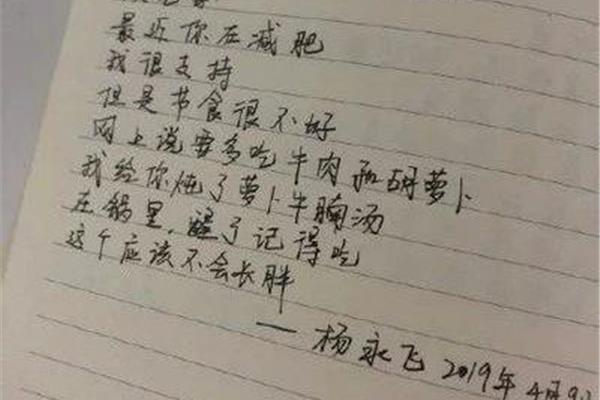 最近你在减肥
我很支持
但是节食很不好
网上说要多吃牛肉和胡萝卜
我给你炖了萝卜牛腩汤
在锅里,醒了记得吃
这个应该不会长胖
——杨永飞 2019年4月9